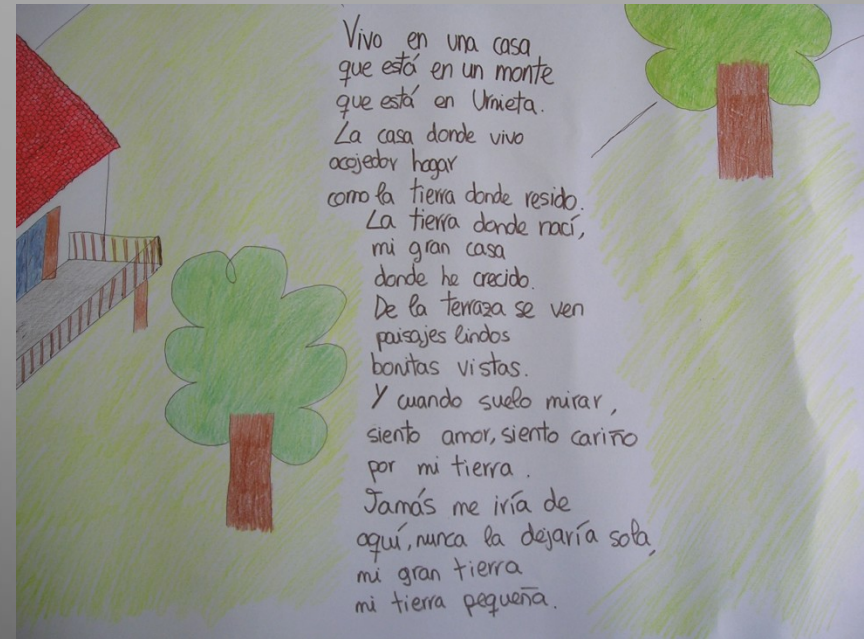 Vivo en una casa
que está en un monte
que está en Urnieta.
La casa donde vivo
acojedor hogar
como la tierra donde resido.
La tierra donde nací,
mi gran casa
donde he crecido.
De la terraza se ven
paisajes lindos
bonitas vistas.
Y cuando suelo mirar,
siento amor, siento cariño
por mi tierra.
Jamás me iría de
aquí, nunca la dejaría sola,
mi gran tierra
mi tierra pequeña.